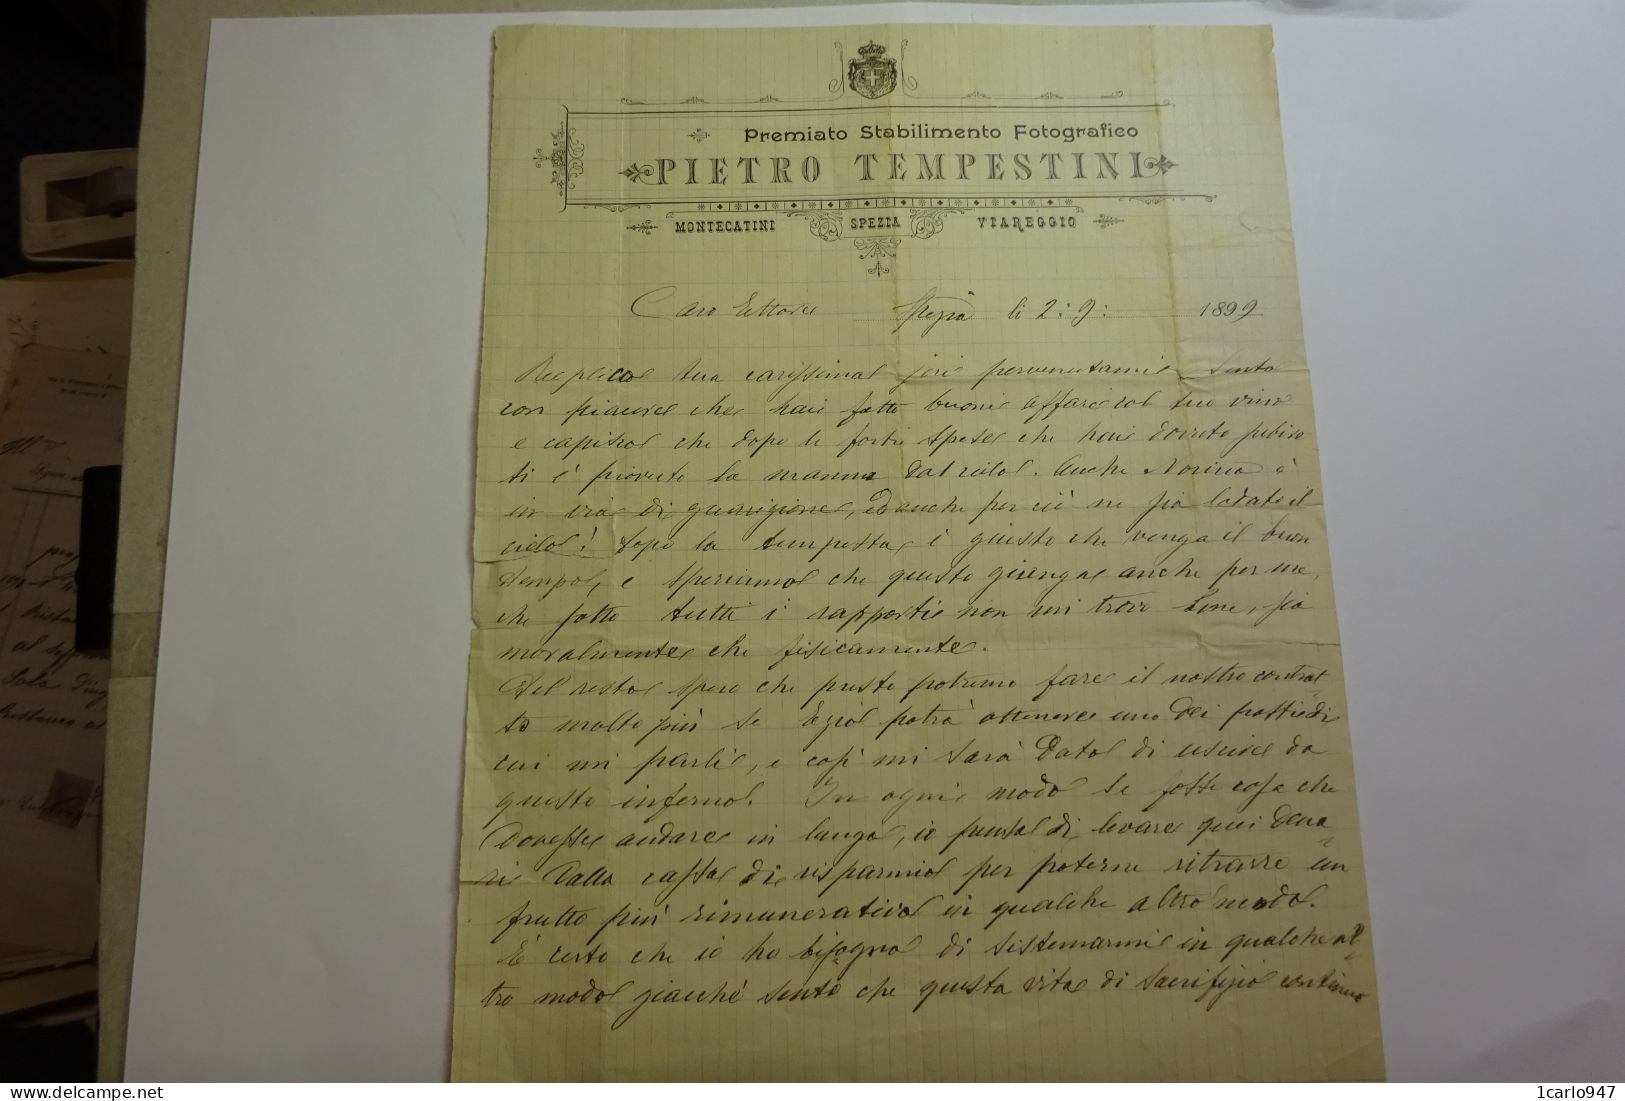 Premiato Stabilimento Fotografico
PIETRO TEMPESTINI
MONTECATINI SPEZIA VIAREGGIO
Caro Ettore Spezia li 2:9: 1899
Replico tua carissima jeri pervenutami. Sento
con piacere che hai fatto buoni affari col tuo vino
e capisco che dopo le forti spese che hai dovuto subire
ti è piovuto la manna dal cielo. Anche Norina è
in via di guarigione, ed anche per ciò ne sia lodato il
cielo! Dopo la tempesta è giusto che venga il buon
tempo, e speriamo che questo giunga anche per me,
che sotto tutti i rapporti non mi trovo bene, sia
moralmente che fisicamente.
Del resto spero che presto potremo fare il nostro contrat
to molto più se Egio potrà ottenere uno dei posti di
cui mi parli, e così mi sarà dato di uscire da
questo inferno. In ogni modo se fosse cosa che
dovesse andare in lungo, io penso di levare quei dena
ri dalla cassa di risparmio per poterne ritrarre un
frutto più rimunerativo in qualche altro modo.
È certo che io ho bisogno di sistemarmi in qualche al
tro modo giacché sento che questa vita di sacrifizio continuo
1carlo947